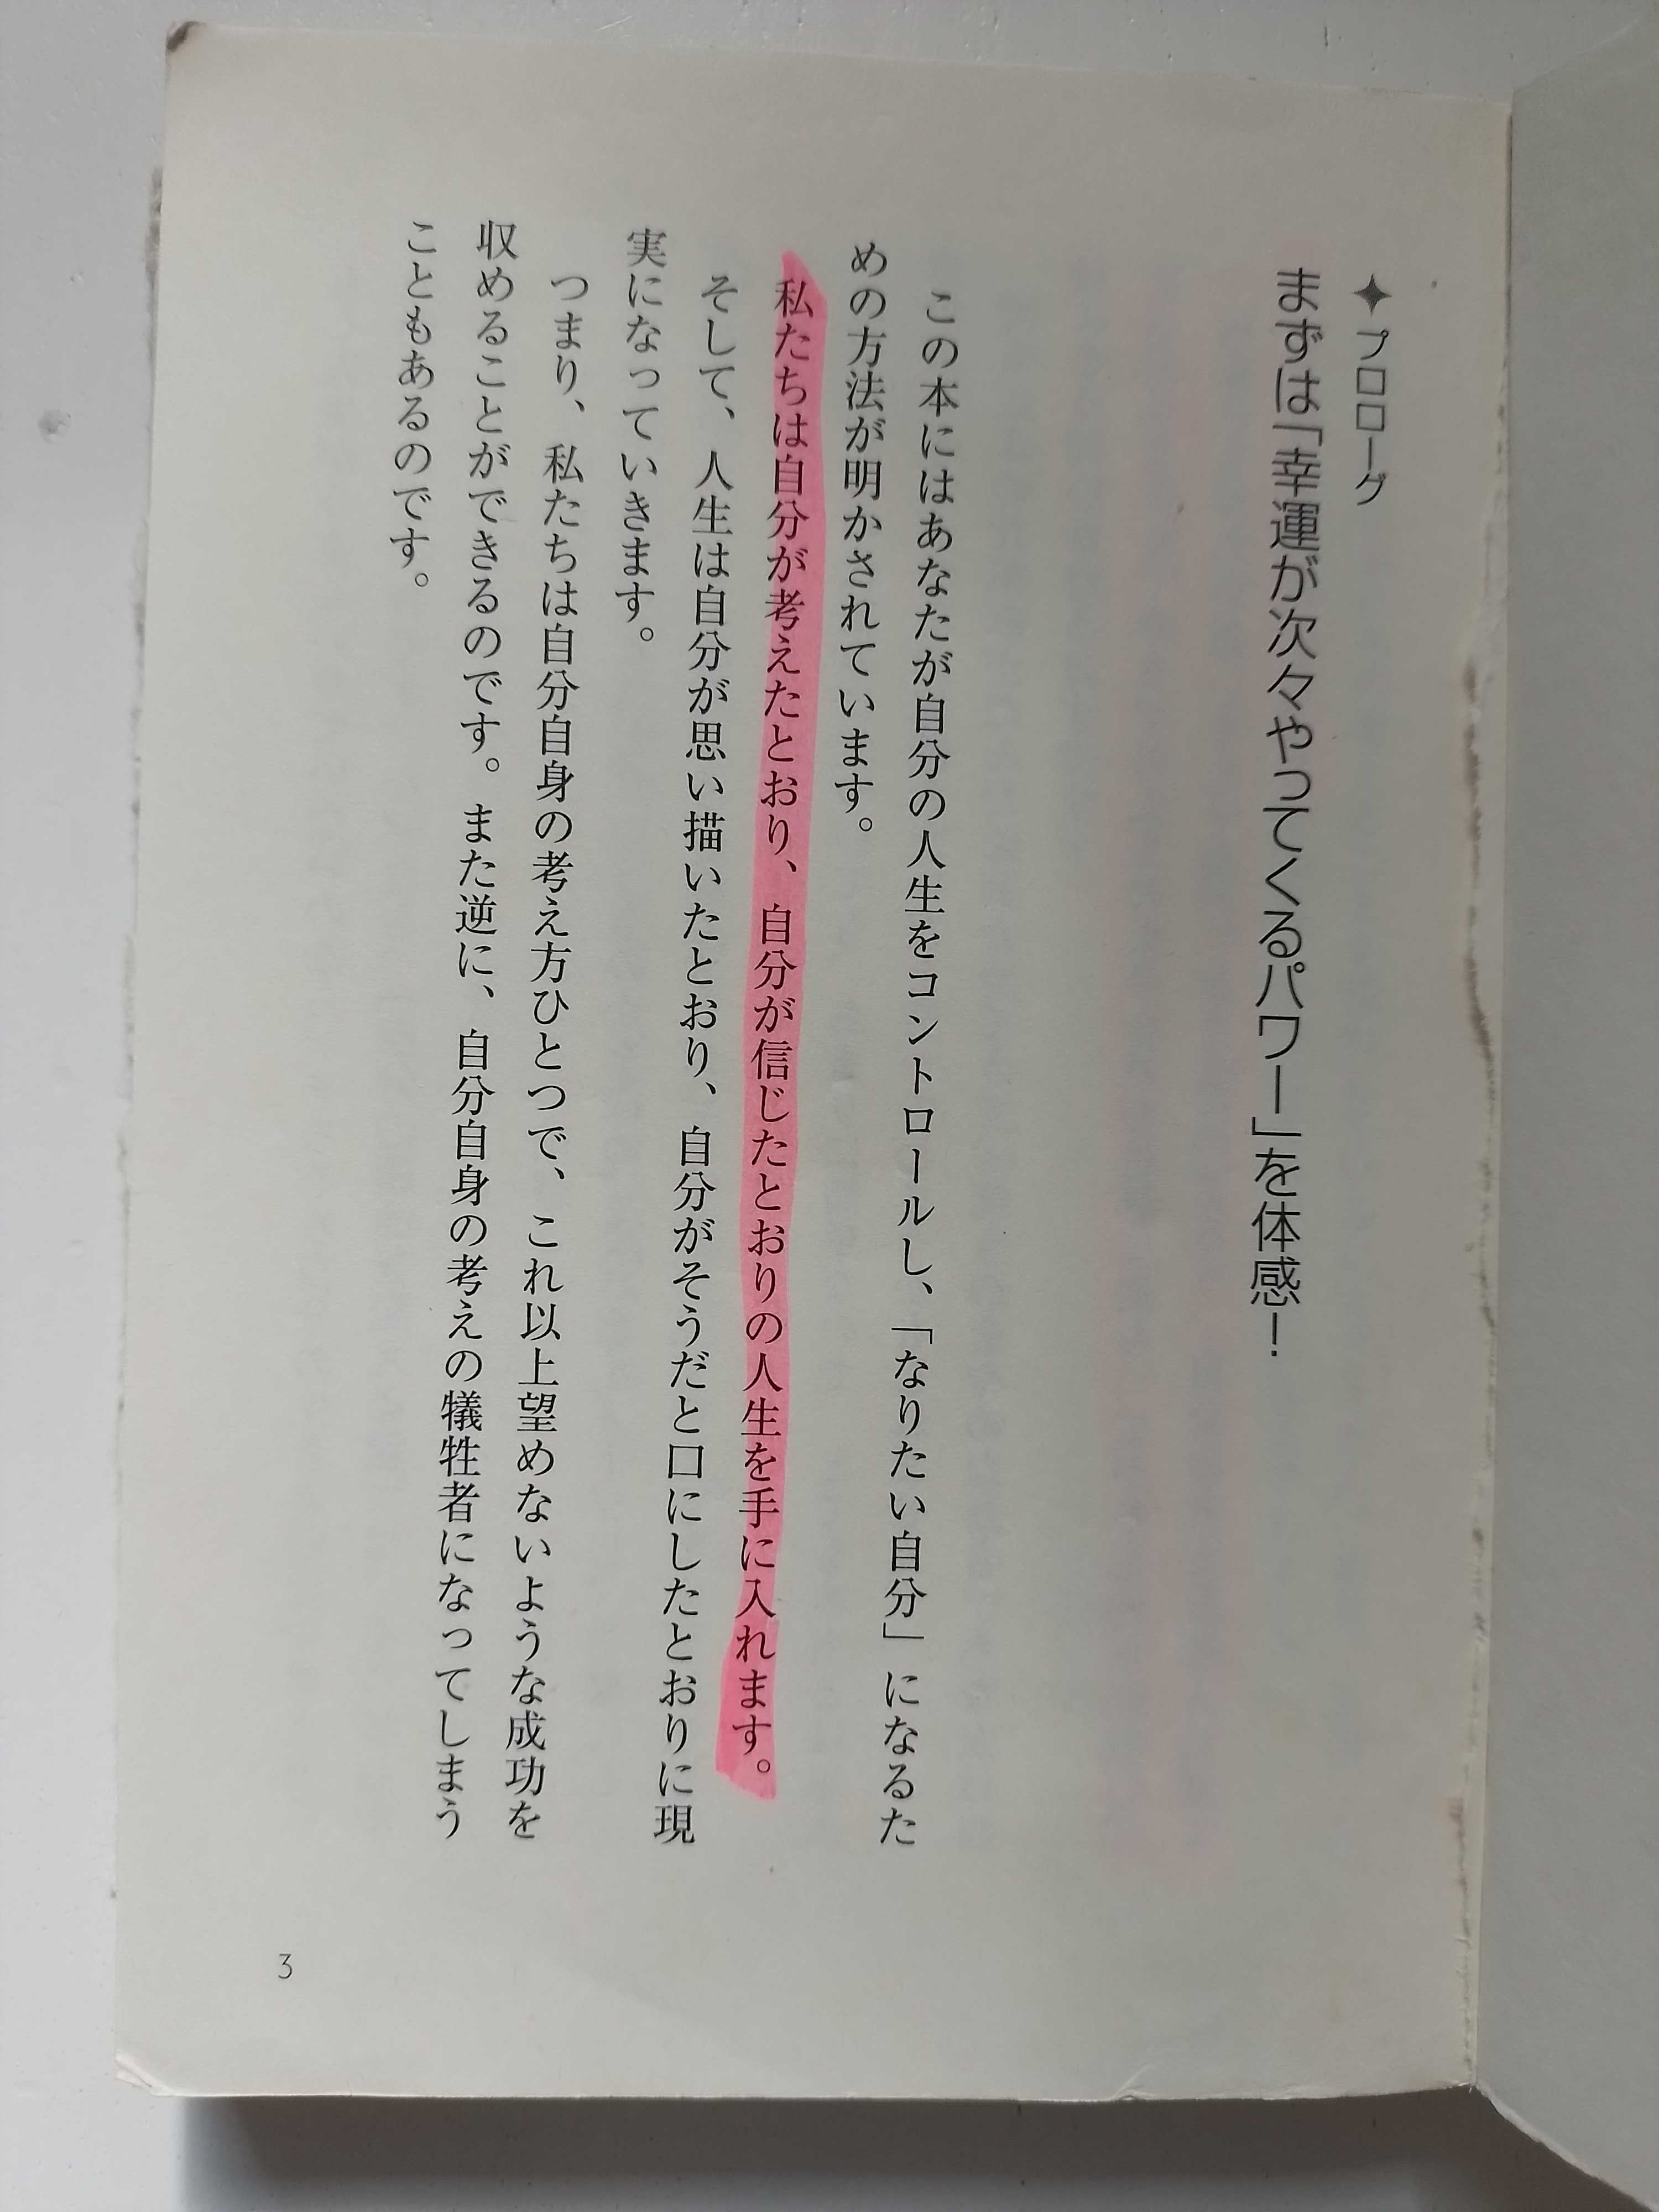 ✦プロローグ
まずは「幸運が次々やってくるパワー」を体感！
この本にはあなたが自分の人生をコントロールし、「なりたい自分」になるた
めの方法が明かされています。
私たちは自分が考えたとおり、自分が信じたとおりの人生を手に入れます。
そして、人生は自分が思い描いたとおり、自分がそうだと口にしたとおりに現
実になっていきます。
つまり、私たちは自分自身の考え方ひとつで、これ以上望めないような成功を
収めることができるのです。また逆に、自分自身の考えの犠牲者になってしまう
こともあるのです。
3